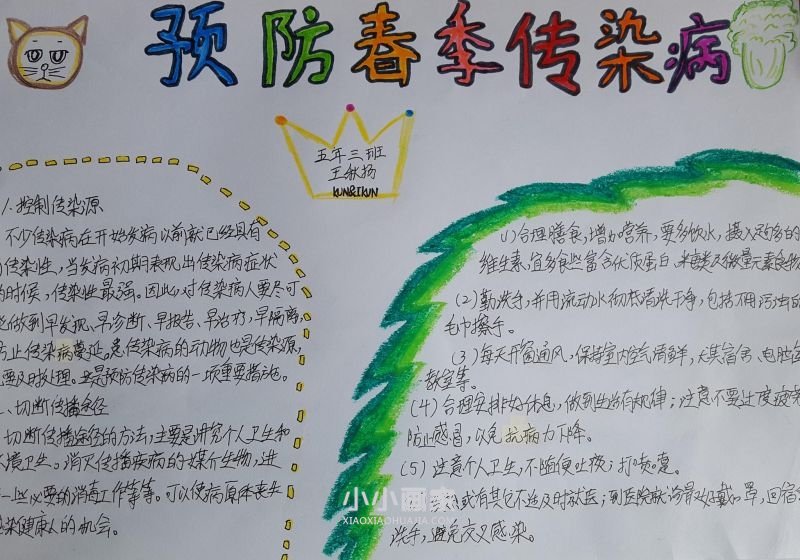 预防春季传染病
五年三班
王秋扬
KUN&IKUN
1.控制传染源
不少传染病在开始发病以前就已经具有
传染性，当发病初期表现出传染病症状
的时候，传染性最强。因此，对传染病人要尽可
能做到早发现、早诊断、早报告、早治疗，早隔离，
防止传染病蔓延。患传染病的动物也是传染源，
要及时处理。这是预防传染病的一项重要措施。
、切断传播途径
切断传播途径的方法，主要是讲究个人卫生和
环境卫生。消灭传播疾病的媒介生物，进
一些必要的消毒工作等等。可以使病原体丧失
感染健康人的机会。
1）合理膳食，增加营养，要多饮水，摄入足够的
维生素，宜多食些富含优质蛋白、糖类及微量元素食物
（2）勤洗手，并用流动水彻底清洗干净，包括不用污浊的
毛巾擦手。
（3）每天开窗通风，保持室内空气新鲜，尤其宿舍、电脑室
教室等。
（4）合理安排好休息，做到生活有规律；注意不要过度疲劳
防止感冒，以免抗病力下降。
（5）注意个人卫生，不随便吐痰；打喷嚏。
或有其它不适及时就医；到医院就诊最好戴口罩，回宿舍
洗手，避免交叉感染。
小小画家
XIAOXIAOHUAJIA.COM